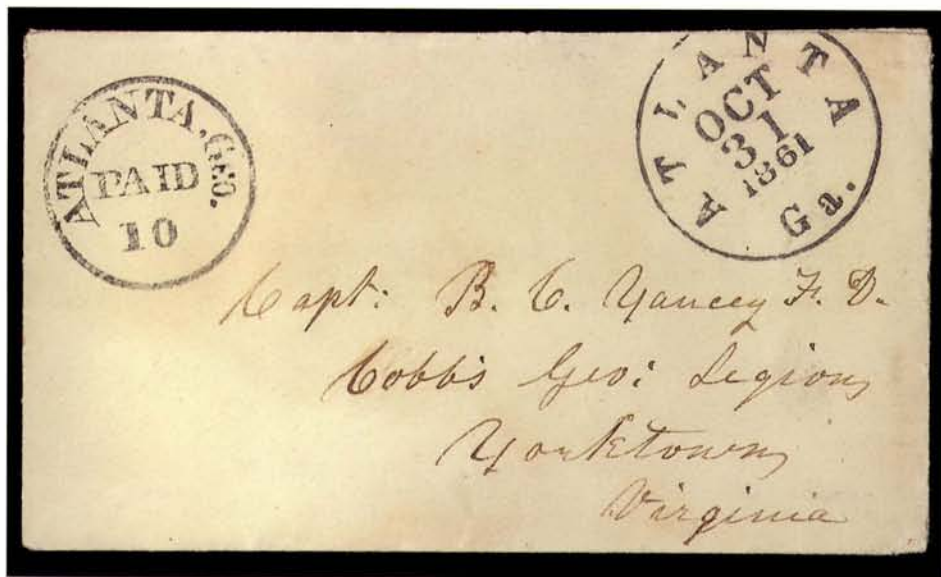 ATLANTA, GEO.
PAID
10
ATLANTA
OCT
31
1861
Ga.
Capt: B. C. Yancey F. D.
Cobb's Geo: Legion
Yorktown
Virginia